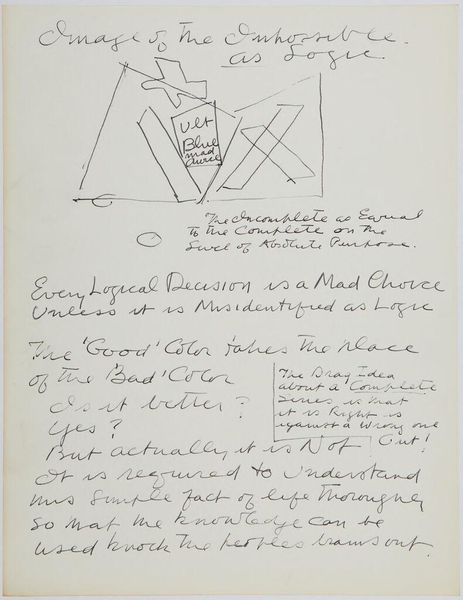 Image of the Impossible.
as Logic.
Ult
Blue
mad
The Incomplete as Equal
to the Complete on the
Level of Absolute Purpose.
Every Logical Decision is a Mad Choice
Unless it is Misidentified as Logic
The 'Good' Color takes the place
of the 'Bad' Color
Is it better?
Yes?
But actually it is Not
The Drag Idea
about a Complete
Series is that
it is Right is
against a Wrong one
Out!
It is required to Understand
this simple fact of life thoroughly
so that the knowledge can be
used knock the peoples brains out.